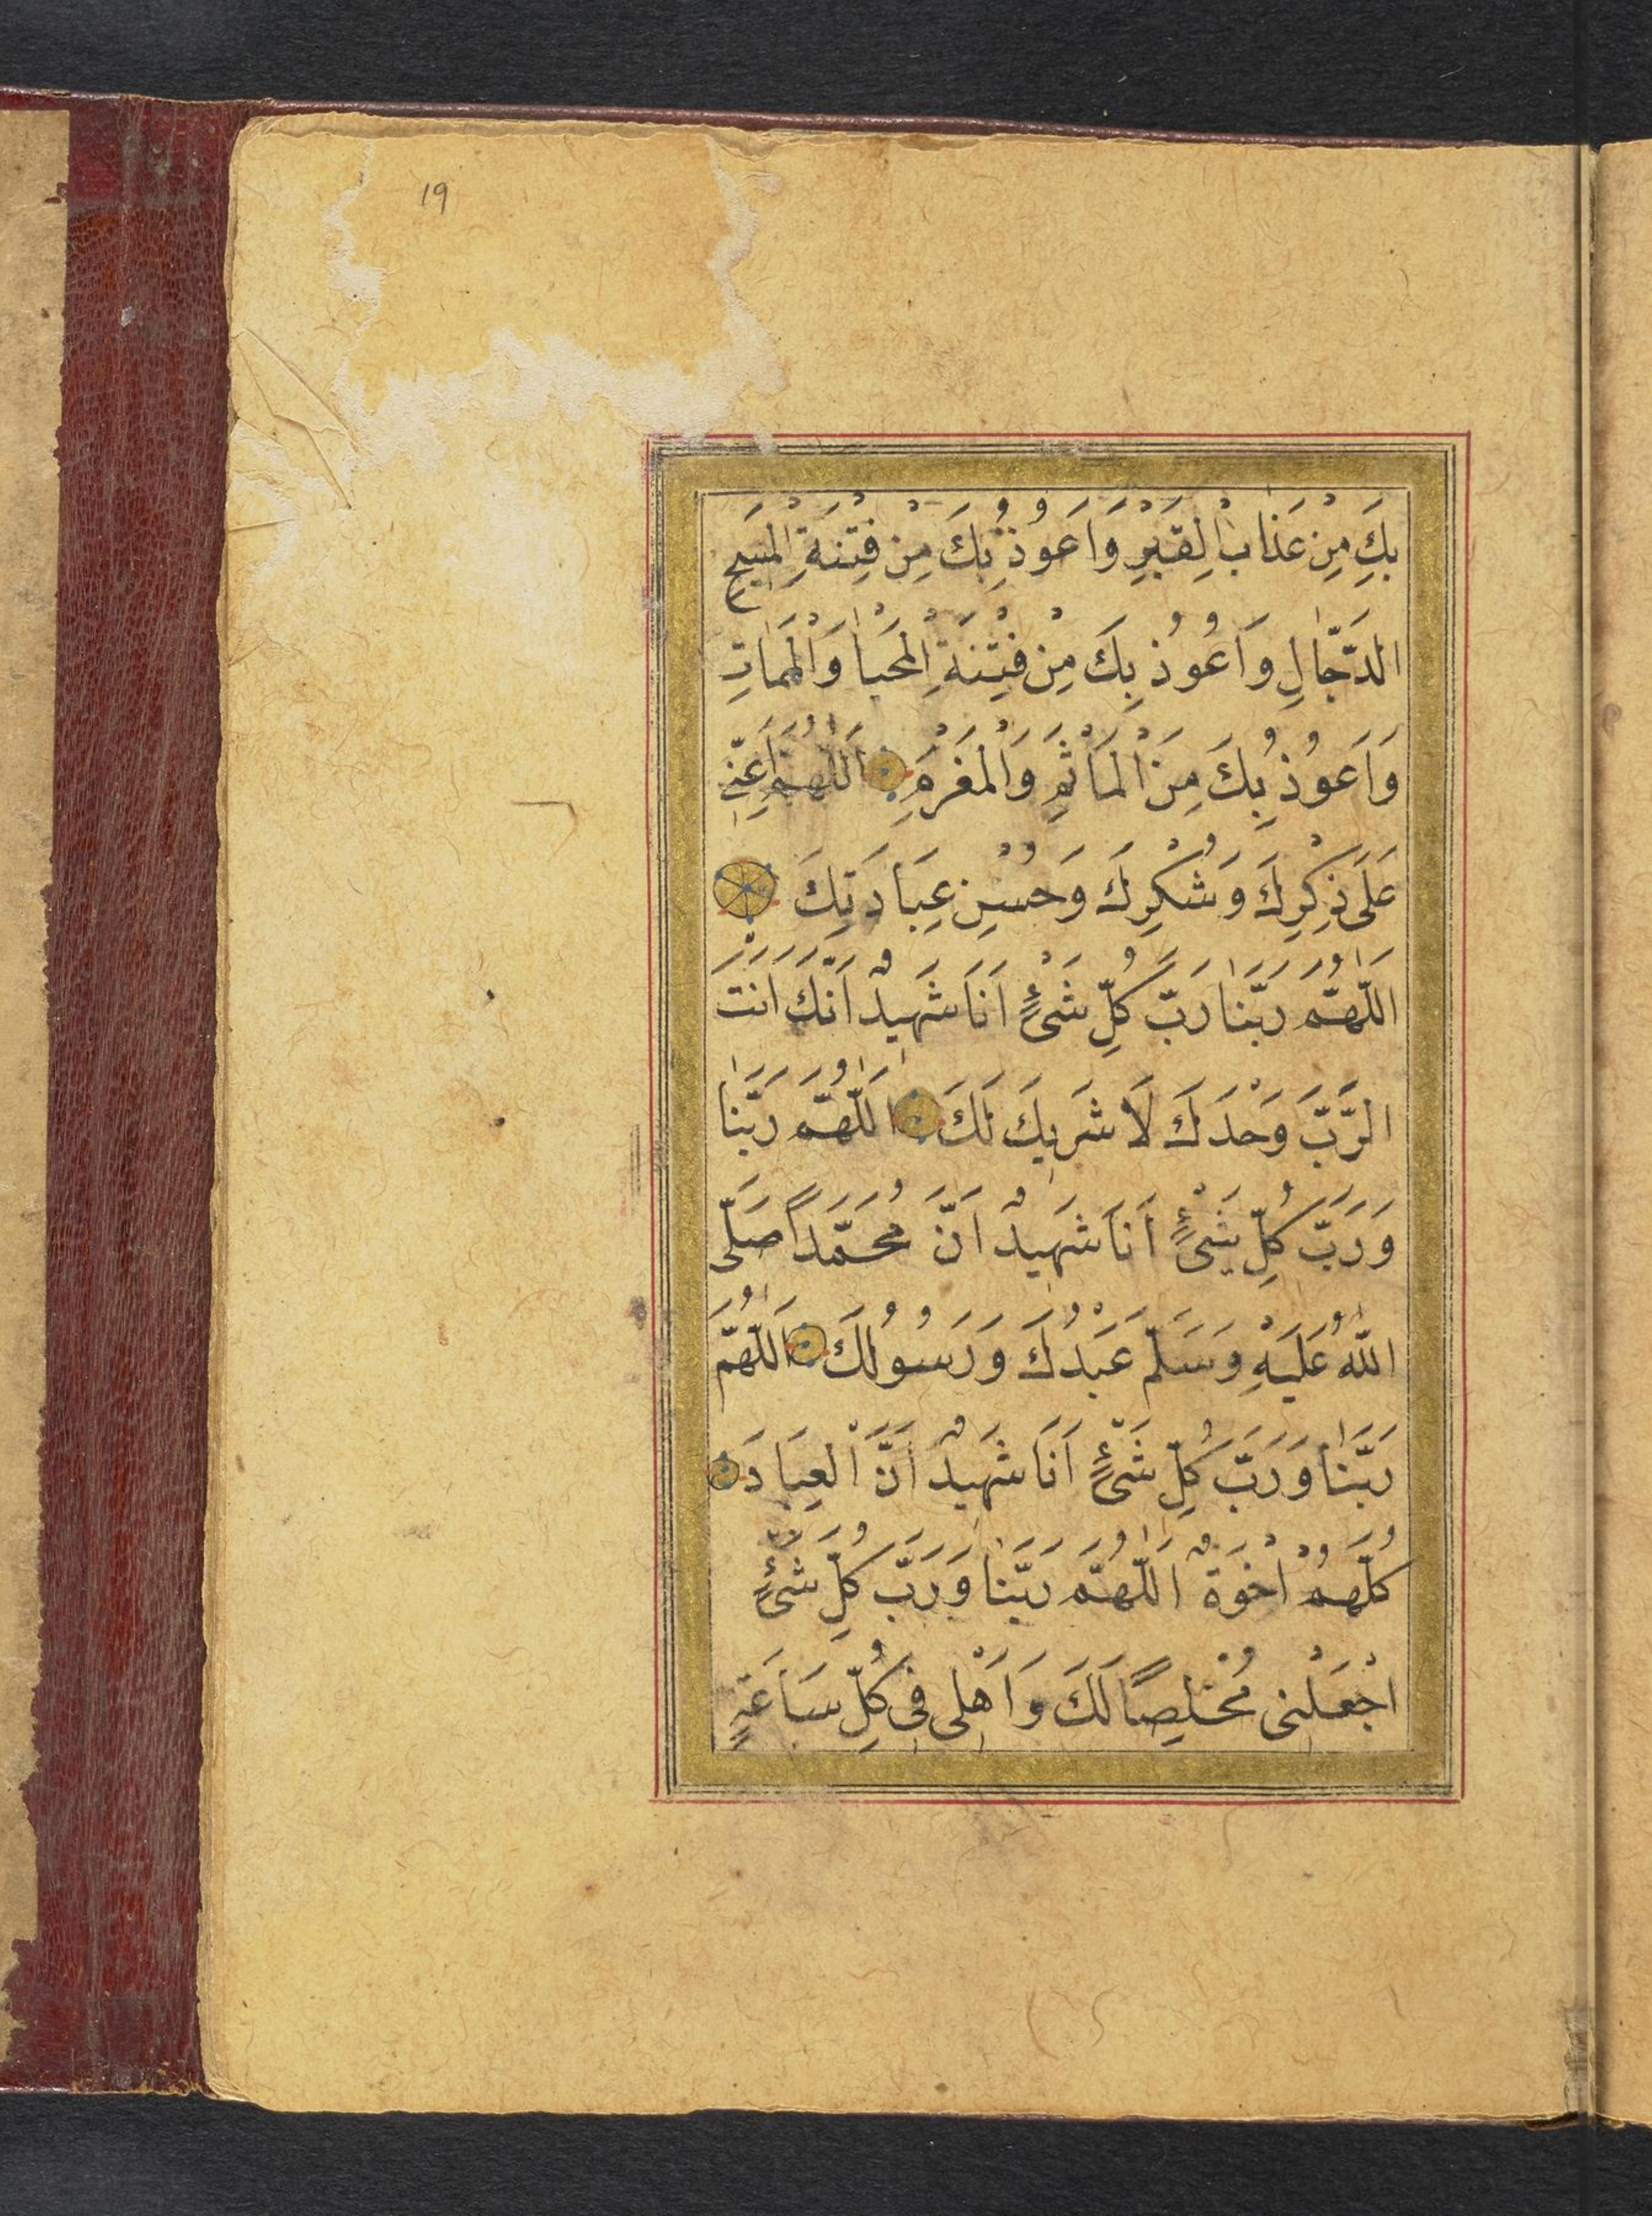 19
بِكَ مِنْ عَذَابِ الْقَبْرِ وَاَعُوذُ بِكَ مِنْ فِتْنَةِ الْمَسِيحِ
الدَّجَّالِ وَاَعُوذُ بِكَ مِنْ فِتْنَةِ الْمَحْيَا وَالْمَمَاتِ
وَاَعُوذُ بِكَ مِنَ الْمَاْثَمِ وَالْمَغْرَمِ اَللّٰهُمَّ اَعِنِّي
عَلَى ذِكْرِكَ وَشُكْرِكَ وَحُسْنِ عِبَادَتِكَ
اللّٰهُمَّ رَبَّنَا رَبَّ كُلِّ شَىْءٍ اَنَا شَهِيدٌ اَنَّكَ اَنْتَ
الرَّبُّ وَحْدَكَ لَا شَرِيكَ لَكَ اَللّٰهُمَّ رَبَّنَا
وَرَبَّ كُلِّ شَىْءٍ اَنَا شَهِيدٌ اَنَّ مُحَمَّدًا صَلَّى
اللّٰهُ عَلَيْهِ وَسَلَّمَ عَبْدُكَ وَرَسُولُكَ اَللّٰهُمَّ
رَبَّنَا وَرَبَّ كُلِّ شَىْءٍ اَنَا شَهِيدٌ اَنَّ الْعِبَادَ
كُلَّهُمْ اِخْوَةٌ اَللّٰهُمَّ رَبَّنَا وَرَبَّ كُلِّ شَىْءٍ
اجْعَلْنِى مُخْلِصًا لَكَ وَاَهْلِى فِى كُلِّ سَاعَةٍ